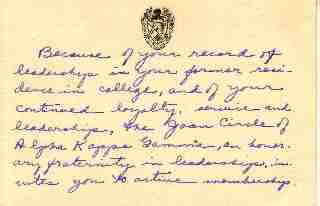 Because of your record of
leadership in your former resi-
dence in college, and of your
continued loyalty, service and
leadership, the Joan Circle of
Alpha Kappa Gamma, an honor-
ary fraternity in leadership, in-
vites you to active membership.